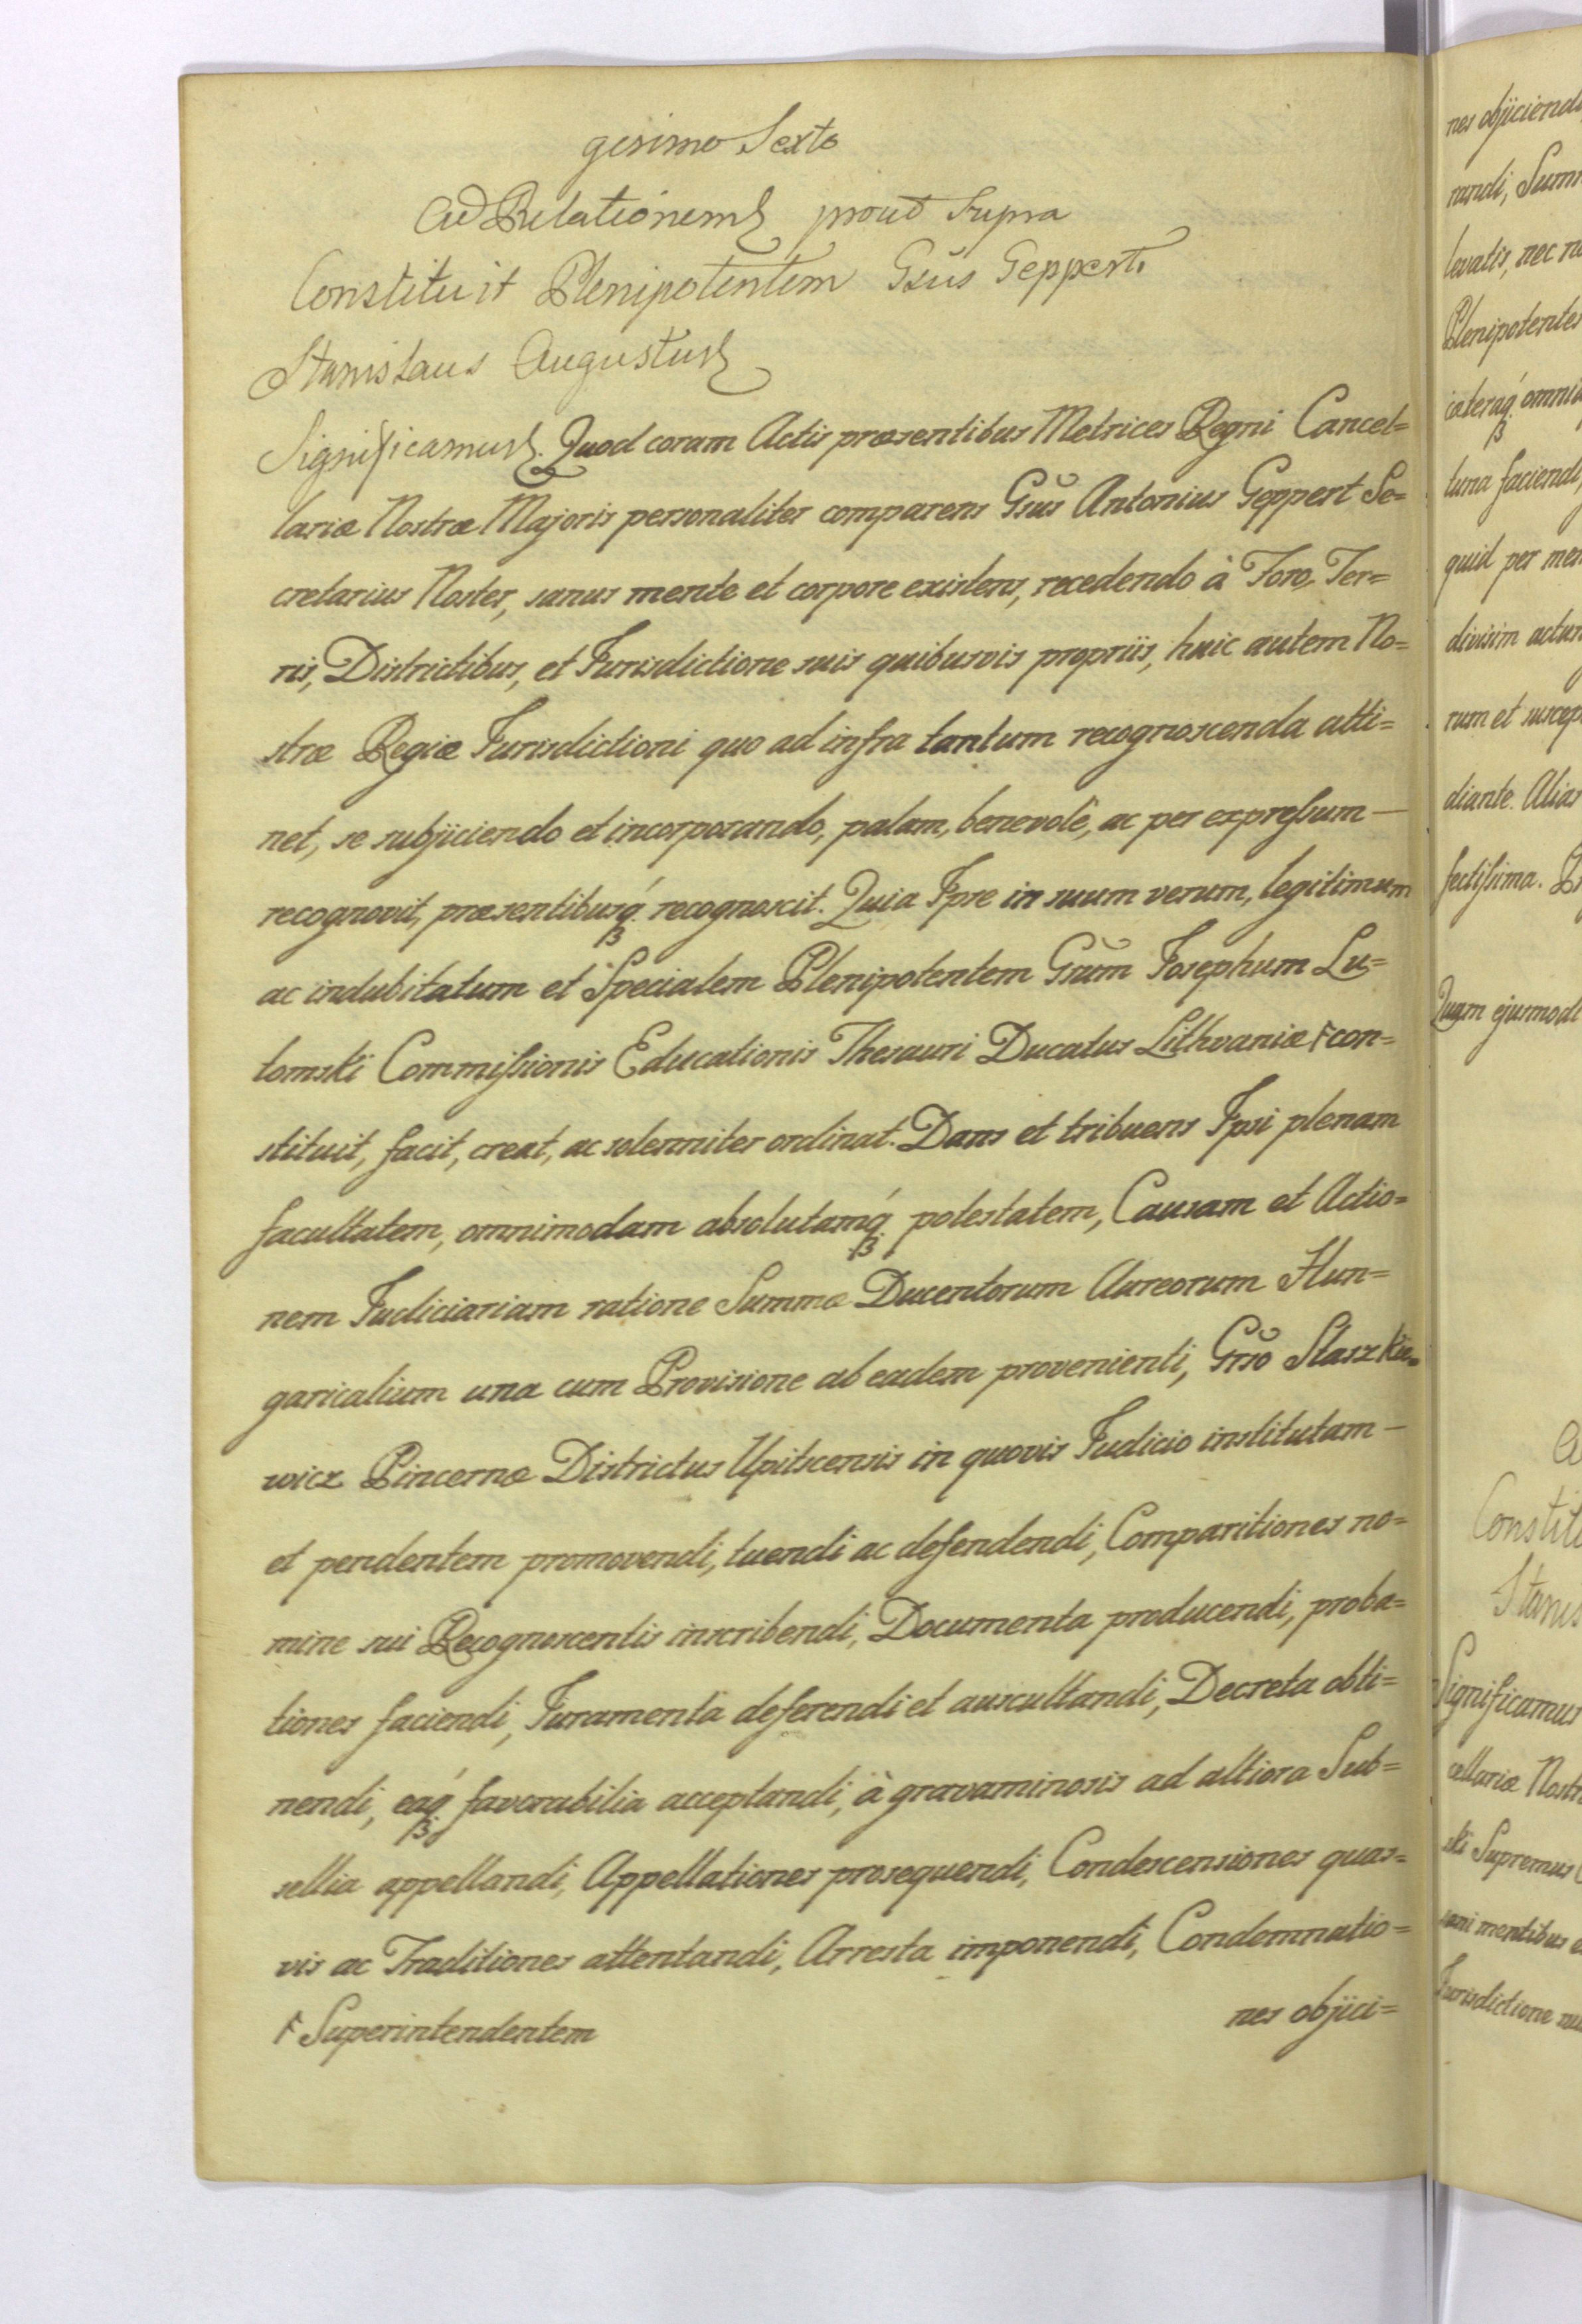 gesimo Sexto
Ad Relationem prout Supra
Constituit Plenipotentem Gsus Geppert.
Stanislaus Augustus
Significamus. Quod coram Actis præsentibus Metrices Regni Cancel=
lariæ Nostræ Majoris personaliter comparens Gsus Antonius Geppert Se=
cretarius Noster, sanus mente et corpore existens, recedendo à Foro, Ter=
ris, Districtibus, et Jurisdictione suis quibusvis propriis, huic autem No=
stræ Regiæ Jurisdictioni quo ad infra tantum recognoscenda atti=
net, se subjiciendo et incorporando, palam, benevolè, ac per expressum —
recognovit, præsentibusq́ recognoscit. Quia Ipse in suum verum, legitimum
ac indubitatum et Specialem Plenipotentem Gsum Josephum Lu=
tomski Commissionis Educationis Thesauri Ducatus Lithvaniæ F con=
stituit, facit, creat, ac solenniter ordinat. Dans et tribuens Ipsi plenam
facultatem, omnimodam absolutamq́ potestatem, Causam et Actio=
nem Judiciariam ratione Summæ Ducentorum Aureorum Hun=
garicalium una cum Provisione ab eadem provenienti, Gso Staszkie=
wicz Pincernæ Districtus Upitscensis in quovis Judicio institutam —
et pendentem promovendi, tuendi ac defendendi, Comparitiones no=
mine sui Recognoscentis inscribendi, Documenta producendi, proba=
tiones faciendi, Juramenta deferendi et auscultandi, Decreta obti=
nendi, eaq́ favorabilia acceptandi, à gravaminosis ad altiora Sub=
sellia appellandi, Appellationes prosequendi, Condescensiones quas=
vis ac Traditiones attentandi, Arresta imponendi, Condemnatio=
F Superintendentem
nes objici=
nes objiciendi
randi, Sum
levatis, nec
Plenipotentes
cæteraq́ omnia
luna faciendi,
quid per me
divisim actu
rum et suscep
diante. Alias
fectissima.
Quam ejusmodi
Constit
Stanis
Significamus
cellariæ Nostr
ski Supremus
sani mentibus
Jurisdictione